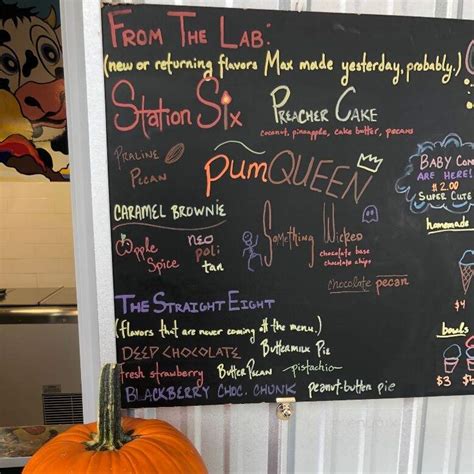 From The Lab:
(new or returning flavors Max made yesterday, probably.)
Station Six
Preacher Cake
coconut, pineapple, cake butter, pecans
Praline
Pecan
PumQUEEN
Caramel Brownie
Apple
Spice
neo
poli
tan
Something Wicked
chocolate base
chocolate chips
chocolate pecan
The Straight Eight
(flavors that are never coming off the menu.)
Deep Chocolate
Buttermilk Pie
fresh strawberry
Butter Pecan
pistachio
Blackberry Choc. Chunk
peanut-butter pie
Baby Con
are here!
$2.00
Super Cute
homemade
$4
bowls
$3
$4